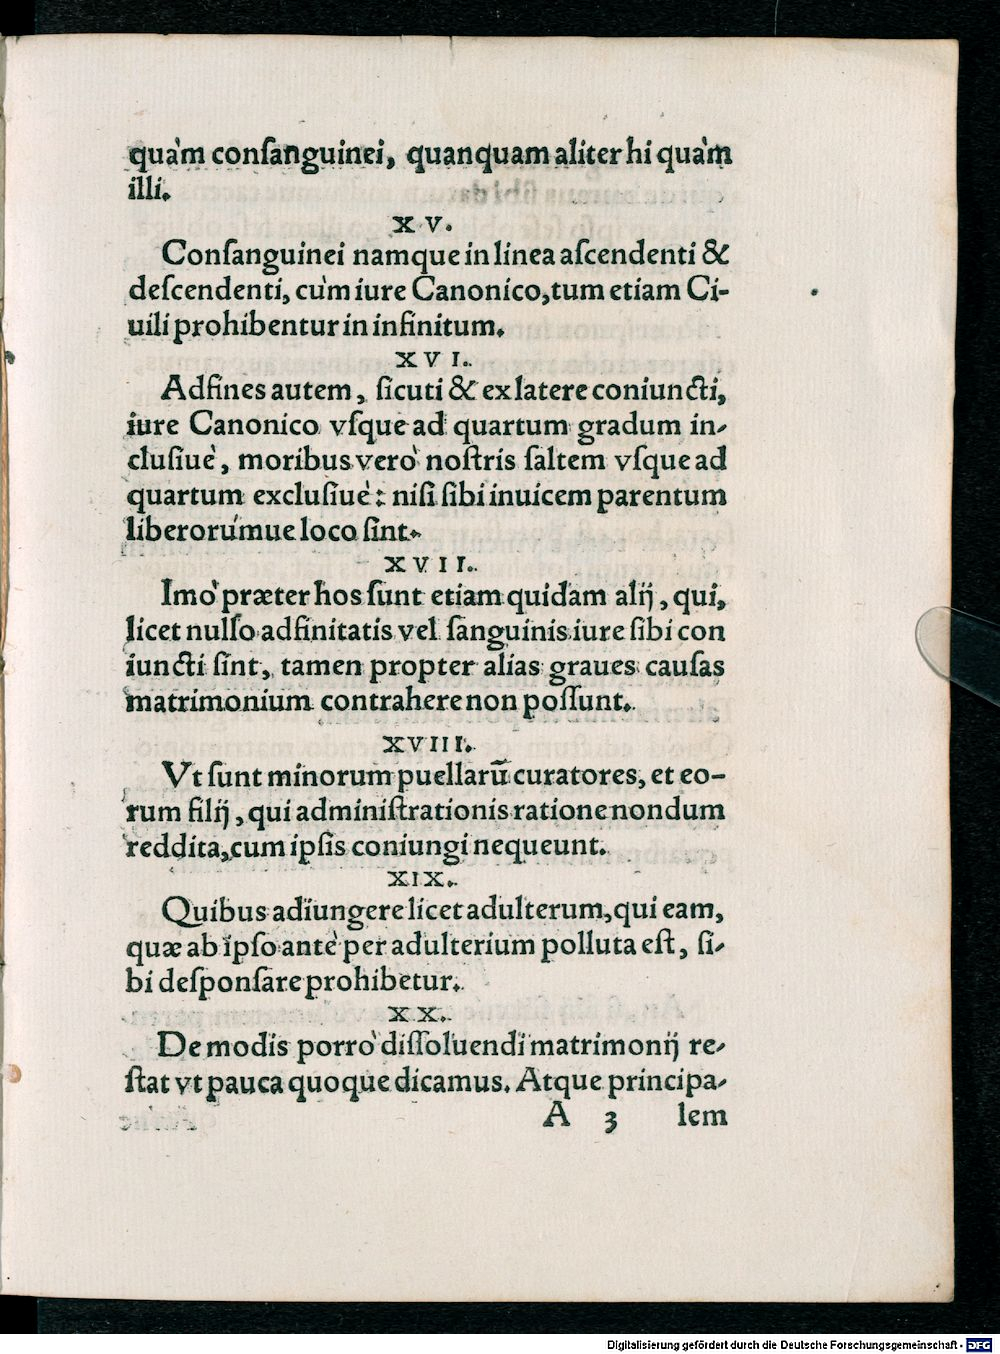 quàm conſanguinei, quanquam aliter hi quàm
illi.
XV.
Conſanguinei namque in linea aſcendenti &
deſcendenti, cùm iure Canonico, tum etiam Ci-
uili prohibentur in infinitum.
XVI.
Adfines autem, ſicuti & ex latere coniuncti,
iure Canonico vſque ad quartum gradum in-
cluſiuè, moribus verò noſtris ſaltem vſque ad
quartum excluſiuè: niſi ſibi inuicem parentum
liberorúmue loco ſint.
XVII.
Imò præter hos ſunt etiam quidam alij, qui,
licet nulſo adfinitatis vel ſanguinis iure ſibi con
iuncti ſint, tamen propter alias graues cauſas
matrimonium contrahere non poſſunt.
XVIII.
Vt ſunt minorum puellarũ curatores, et eo-
rum filij, qui adminiſtrationis ratione nondum
reddita, cum ipſis coniungi nequeunt.
XIX.
Quibus adiungere licet adulterum, qui eam,
quæ ab ipſo antè per adulterium polluta eſt, ſi-
bi deſponſare prohibetur.
XX.
De modis porrò diſſoluendi matrimonij re-
ſtat vt pauca quoque dicamus. Atque principa-
A 3 lem
Digitalisierung gefördert durch die Deutsche Forschungsgemeinschaft - DFG